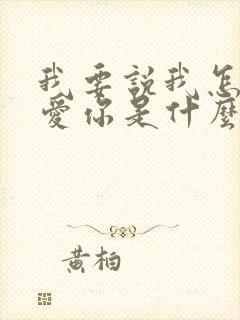 我要説我怎
愛你是什麼
黃柏